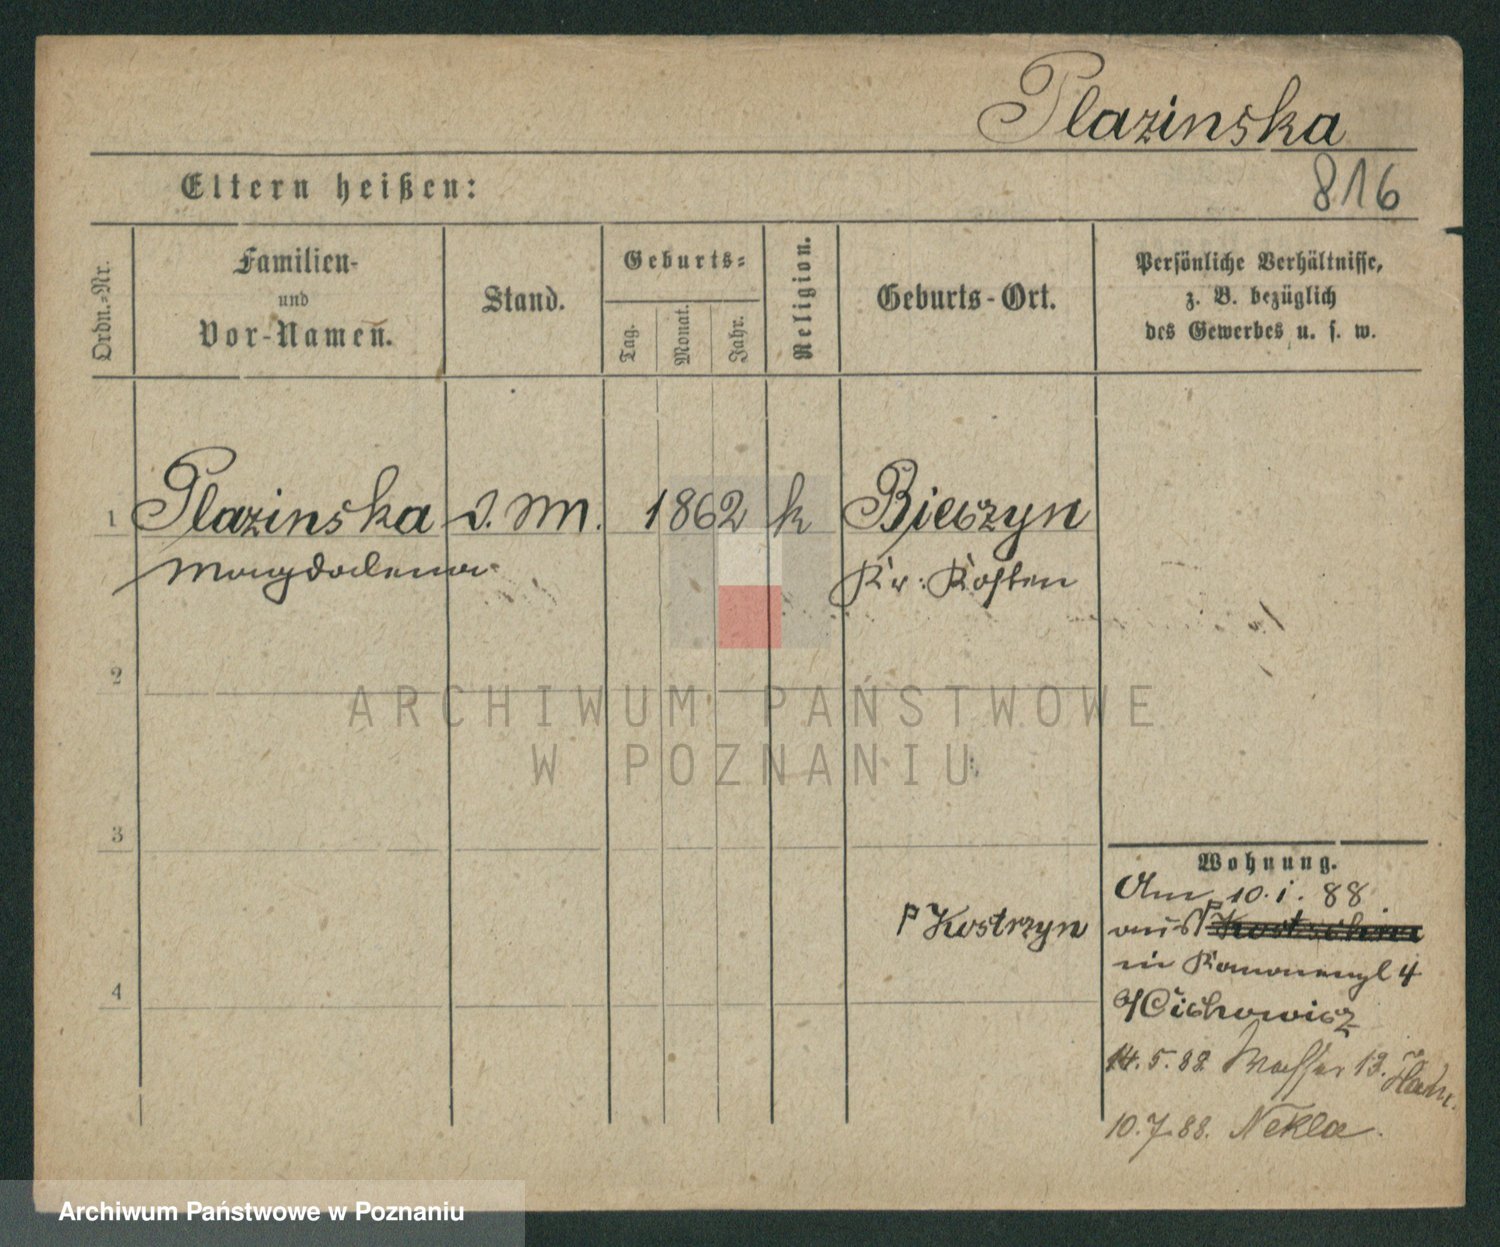 Plazinska
Eltern heißen:
816
Ordn.-Nr.
Familien-
und
Vor-Namen.
Stand.
Geburts-
Tag.
Monat.
Jahr.
Religion.
Geburts-Ort.
Persönliche Verhältnisse,
z. B. bezüglich
des Gewerbes u. s. w.
1 Plazinska D. M. 1862 k Bieczyn
Magdalena Kr: Kosten
2
ARCHIWUM PAŃSTWOWE
W POZNANIU
3
Wohnung.
Am 10.1.88
p Kostrzyn aus
in 4
b/Cichowicz
4
14.5.88 Wasser 13.
10.7.88. Nekla.
Archiwum Państwowe w Poznaniu